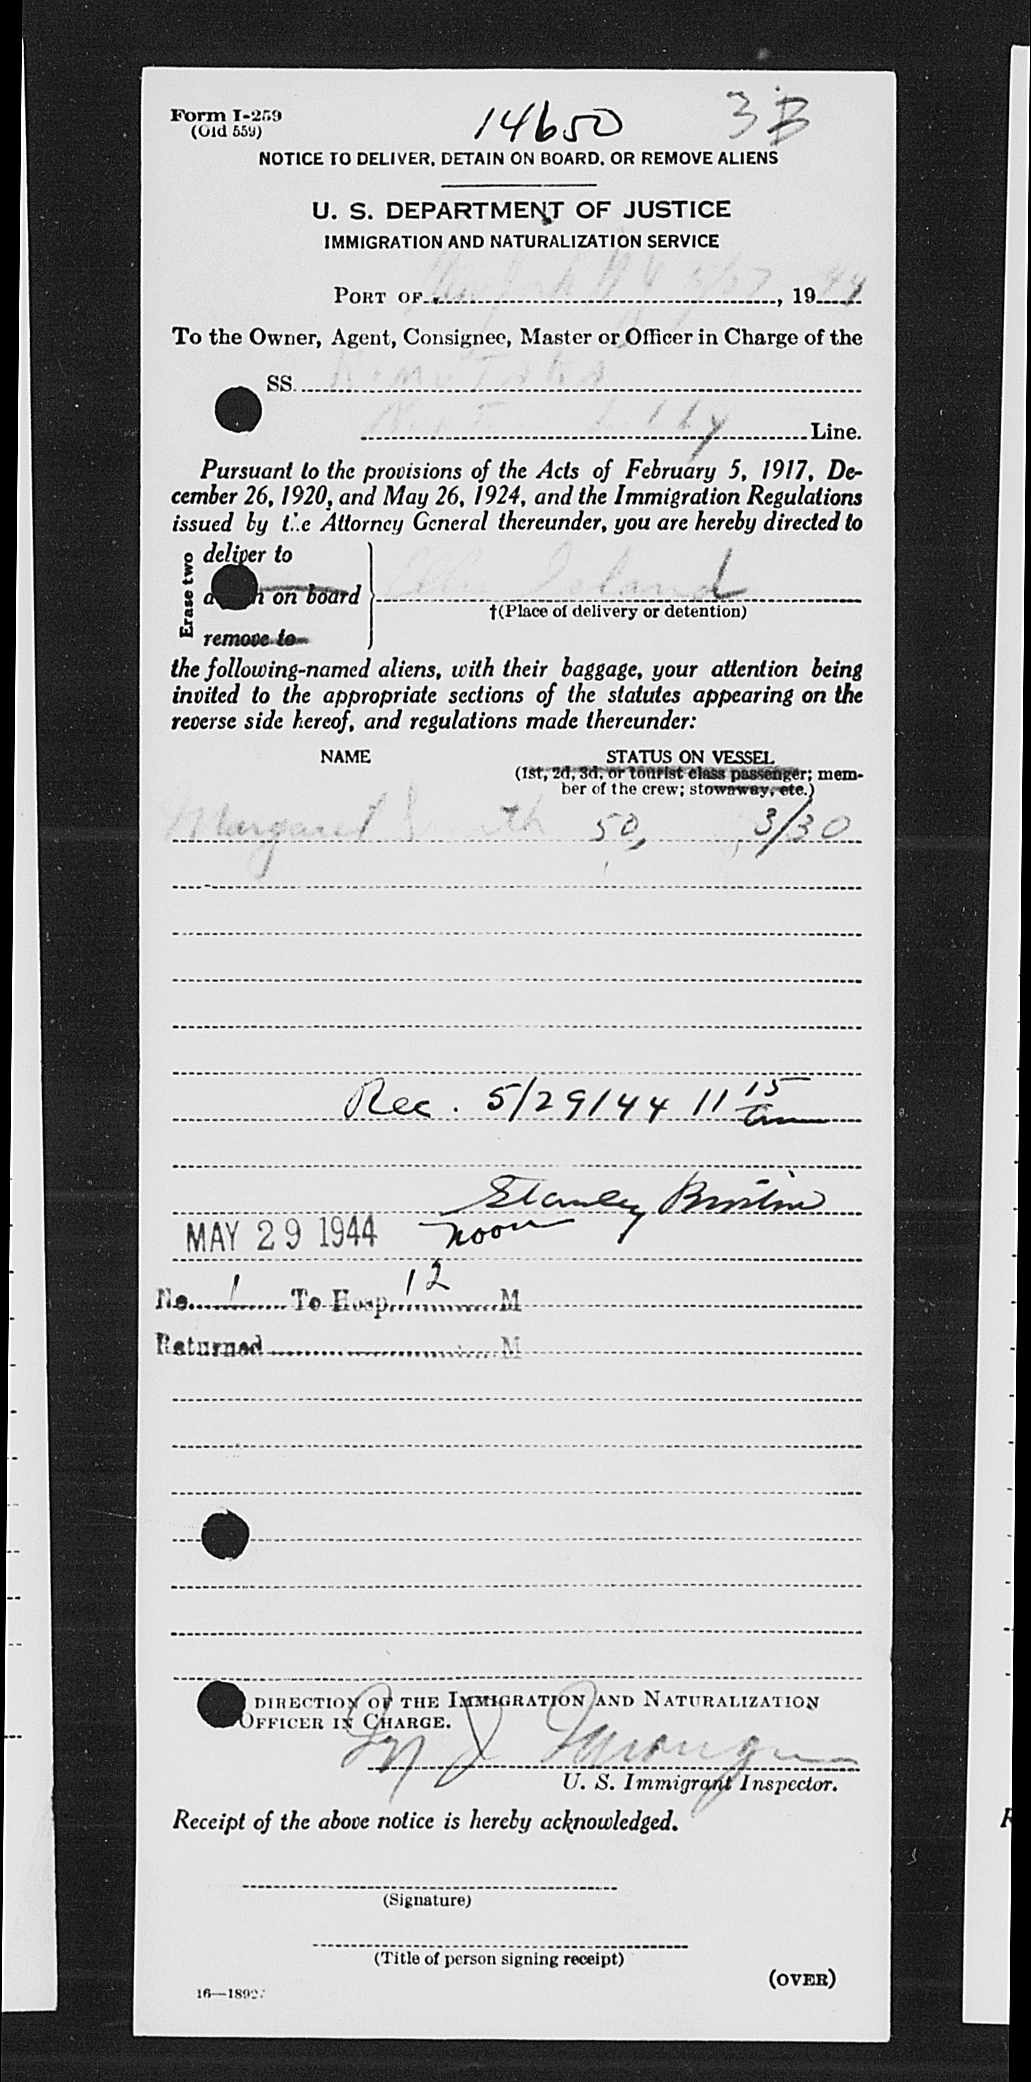 Form I-259
(Old 559)
14650
3B
NOTICE TO DELIVER, DETAIN ON BOARD, OR REMOVE ALIENS
U. S. DEPARTMENT OF JUSTICE
IMMIGRATION AND NATURALIZATION SERVICE
PORT OF New York N Y 5/27, 1944
To the Owner, Agent, Consignee, Master or Officer in Charge of the
SS.
Line.
Pursuant to the provisions of the Acts of February 5, 1917, De-
cember 26, 1920, and May 26, 1924, and the Immigration Regulations
issued by the Attorney General thereunder, you are hereby directed to
Erase two
deliver to
on board
Ellis Island
†(Place of delivery or detention)
remove to
the following-named aliens, with their baggage, your attention being
invited to the appropriate sections of the statutes appearing on the
reverse side hereof, and regulations made thereunder:
NAME STATUS ON VESSEL
(1st, 2d, 3d, or tourist class passenger; mem-
ber of the crew; stowaway, etc.)
Margaret Smith 50, 3/30
Rec. 5/29/44 11 15 am
Stanley
MAY 29 1944 noon
No. 1 To Hosp. 12 M
Returned M
DIRECTION OF THE IMMIGRATION AND NATURALIZATION
OFFICER IN CHARGE.
U. S. Immigrant Inspector.
Receipt of the above notice is hereby acknowledged.
(Signature)
(Title of person signing receipt)
(OVER)